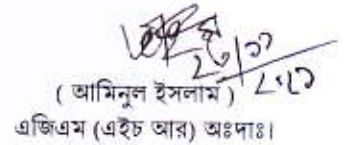 ( আমিনুল ইসলাম )
এজিএম (এইচ আর) অঃদাঃ।